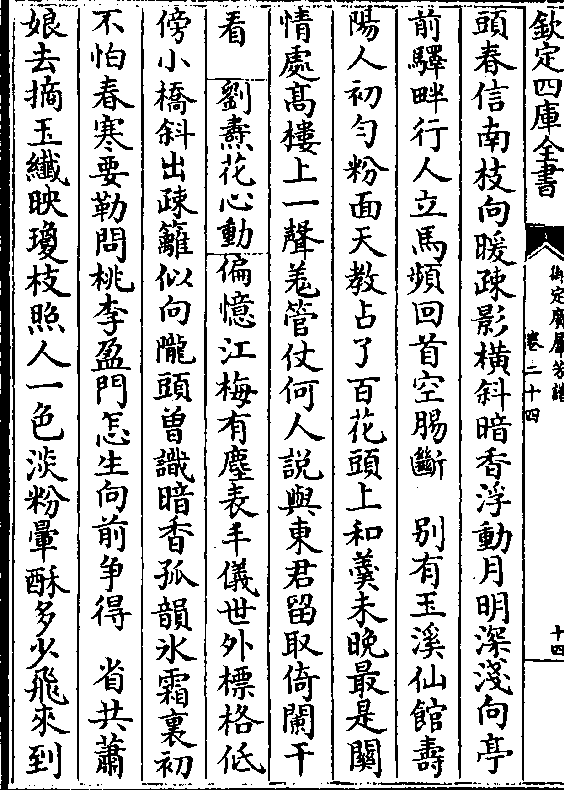 欽定四庫全書
御定廣羣芳譜
卷二十四
十四
頭春信南枝向暖疎影橫斜暗香浮動月明深淺向亭
前驛畔行人立馬頻回首空腸斷　別有玉溪仙館壽
陽人初勻粉面天教占了百花頭上和羹未晚最是關
情處高樓上一聲羗管仗何人說與東君留取倚闌干
看　劉燾花心動偏憶江梅有塵表丰儀世外標格低
傍小橋斜出疎籬似向隴頭曾識暗香孤韻氷霜裏初
不怕春寒要勒問桃李盈門怎生向前争得　省共蕭
娘去摘玉纖映瓊枝照人一色淡粉暈酥多少飛來到